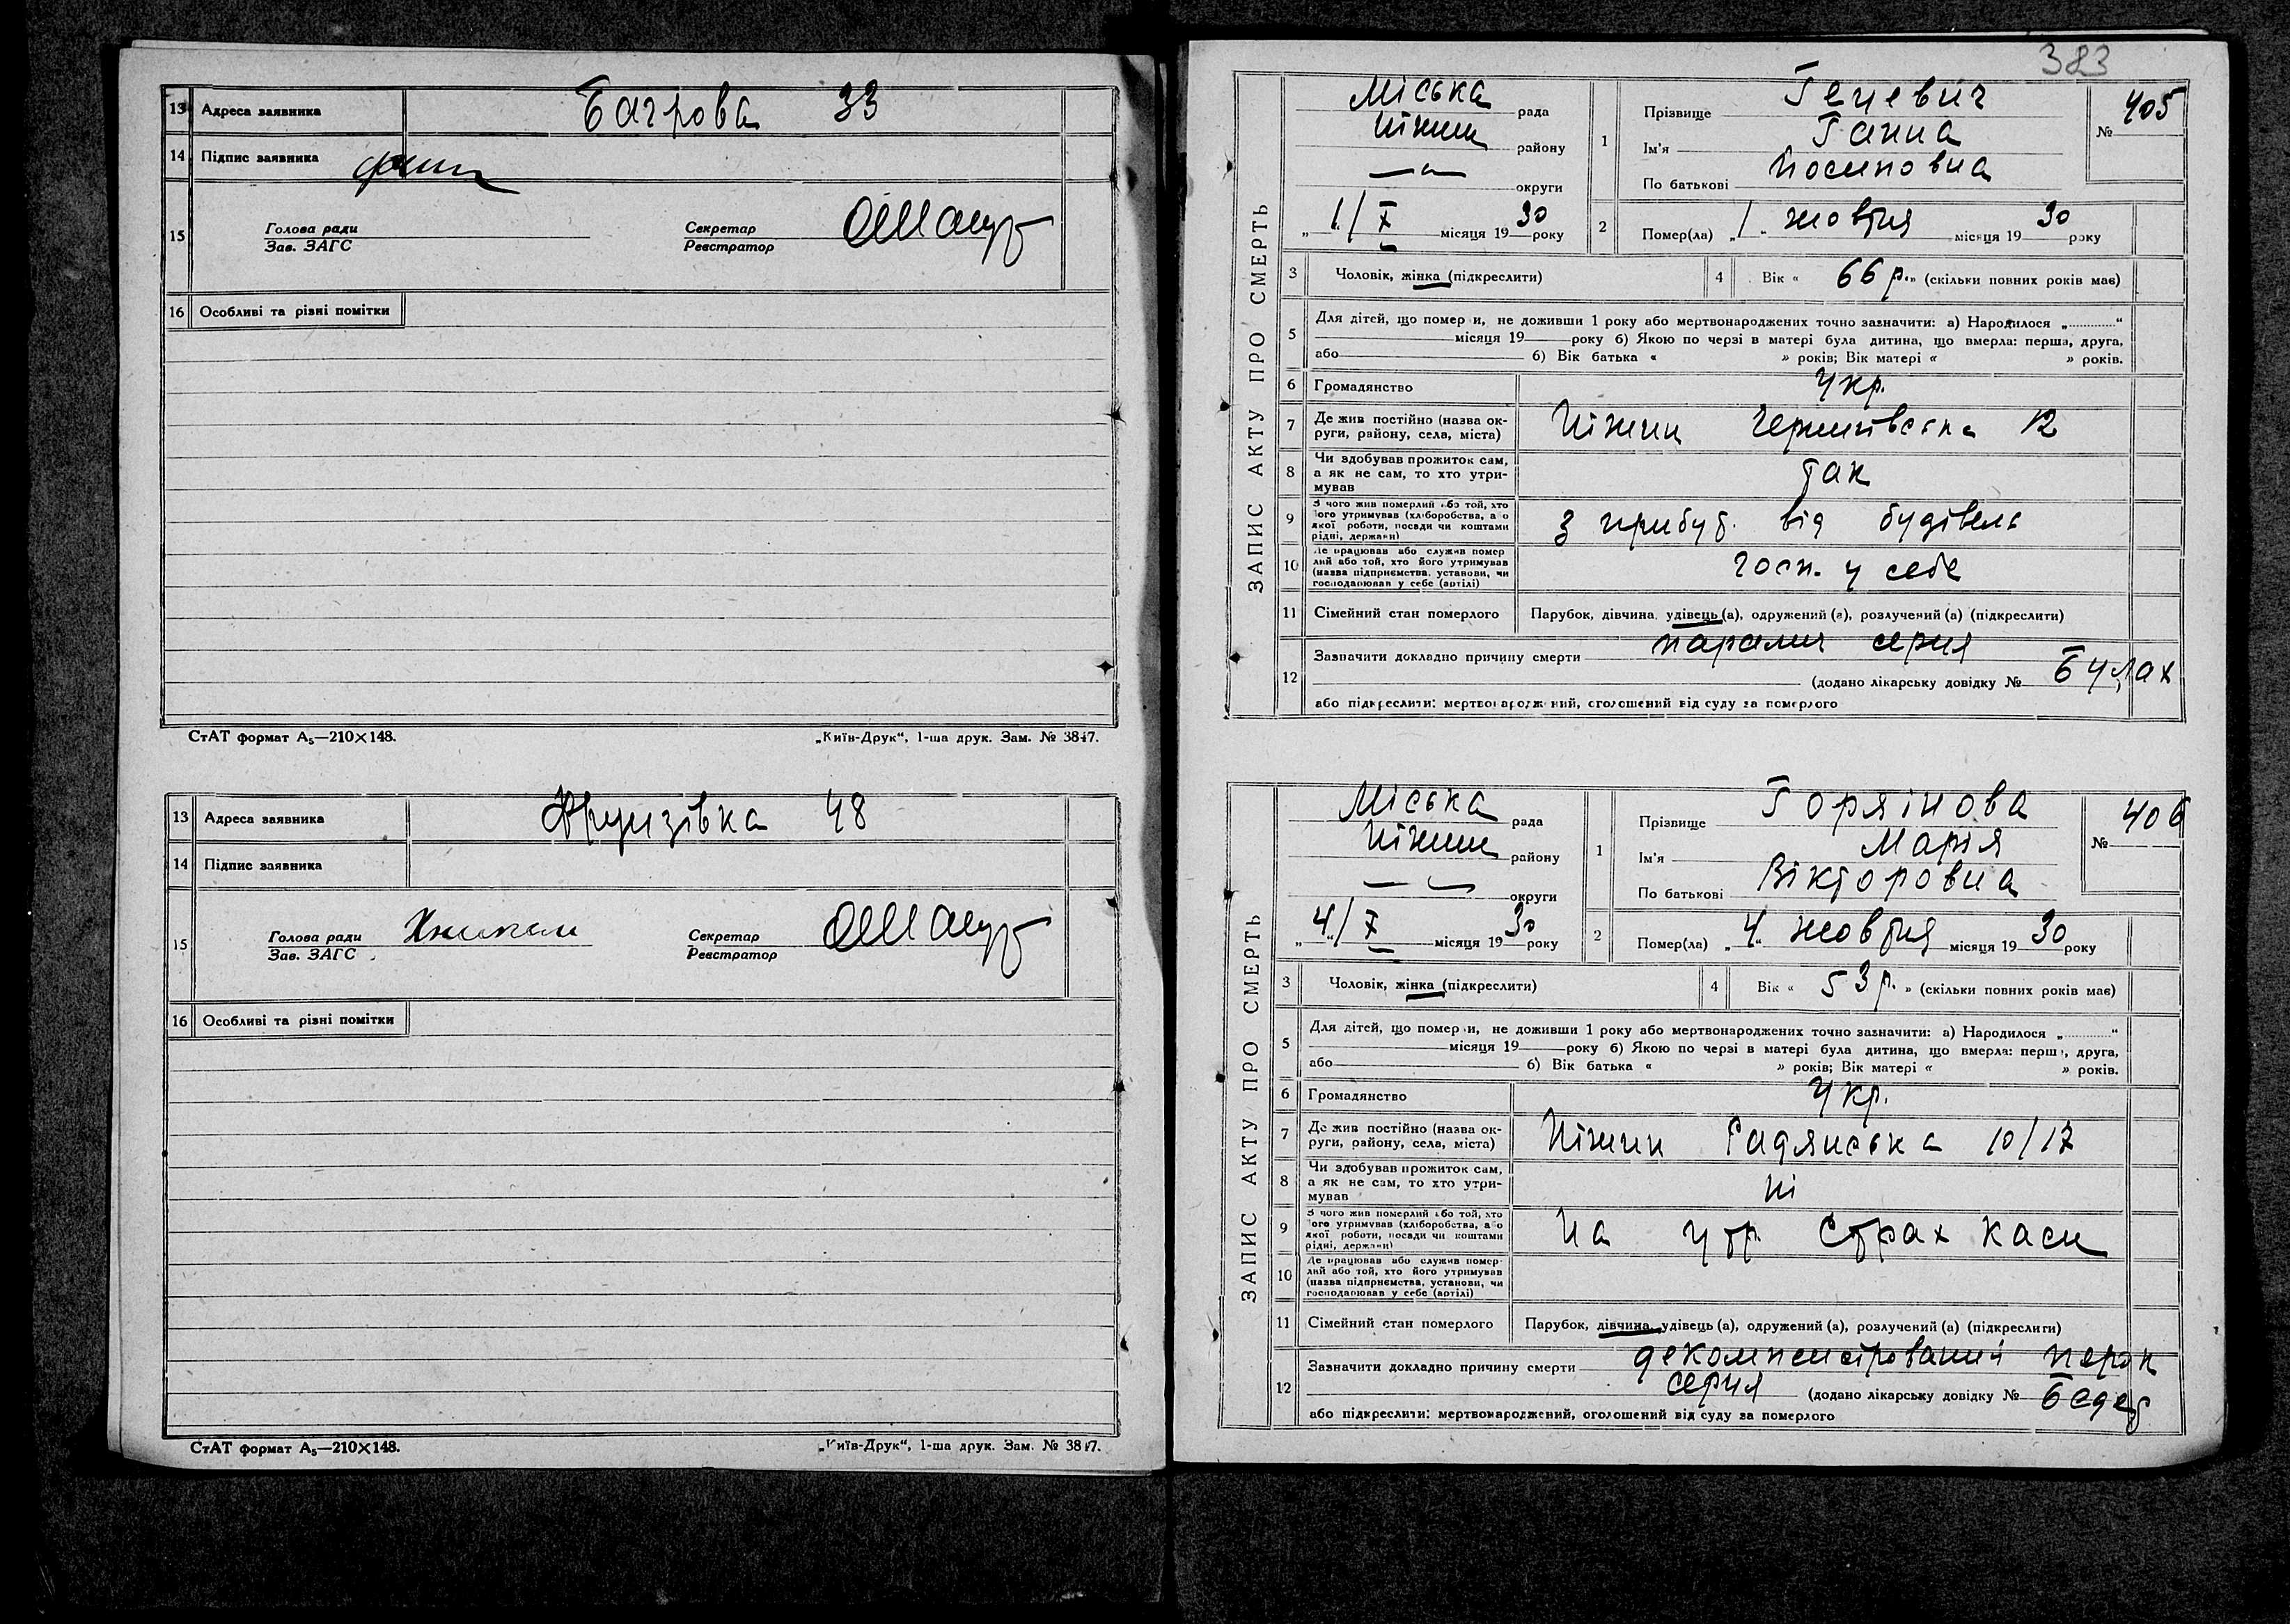 13 Адреса заявника Багрова 33
14 Підпис заявника
15 Голова ради Секретар
Зав. ЗАГС Реєстратор
16 Особливі та різні помітки
СтАТ формат А5—210×148. „Київ-Друк“, 1-ша друк. Зам. № 3847.
13 Адреса заявника 48
14 Підпис заявника
15 Голова ради Секретар
Зав. ЗАГС Реєстратор
16 Особливі та різні помітки
СтАТ формат А5—210×148. „Київ-Друк“, 1-ша друк. Зам. № 3847.
383
ЗАПИС АКТУ ПРО СМЕРТЬ
Міська рада
Ніжин району
округи
„1“/X місяця 1930 року
1 Прізвище Гецевич
Ім'я Ганна
По батькові Йосиповна
№ 405
2 Помер(ла) „1“ жовтня місяця 1930 року
3 Чоловік, жінка (підкреслити)
4 Вік « 66 р. » (скільки повних років має)
5 Для дітей, що померли, не доживши 1 року або мертвонароджених точно зазначити: а) Народилося „............“
місяця 19 року б) Якою по черзі в матері була дитина, що вмерла: перша, друга,
або б) Вік батька « » років; Вік матері « » років.
6 Громадянство Укр.
7 Де жив постійно (назва ок-
руги, району, села, міста) Ніжин Чернигівська 12
8 Чи здобував прожиток сам,
а як не сам, то хто утри-
мував так
9 З чого жив померлий або той, хто
його утримував (хліборобства, або
якої роботи, посади чи коштами
рідні, держави) з прибут. від будівель
10 Де працював або служив помер
лий або той, хто його утримував
(назва підприємства, установи, чи
господарював у себе (артілі) госп. у себе
11 Сімейний стан померлого Парубок, дівчина, удівець (а), одружений (а), розлучений (а) (підкреслити)
12 Зазначити докладно причину смерти параліч серця
(додано лікарську довідку № Булах
або підкреслити: мертвонароджений, оголошений від суду за померлого
ЗАПИС АКТУ ПРО СМЕРТЬ
Міська рада
Ніжин району
округи
„4“/X місяця 1930 року
1 Прізвище Горяінова
Ім'я Марія
По батькові Вікторовна
№ 406
2 Помер(ла) „4“ жовтня місяця 1930 року
3 Чоловік, жінка (підкреслити)
4 Вік « 53 р. » (скільки повних років має)
5 Для дітей, що померли, не доживши 1 року або мертвонароджених точно зазначити: а) Народилося „............“
місяця 19 року б) Якою по черзі в матері була дитина, що вмерла: перша, друга,
або б) Вік батька « » років; Вік матері « » років.
6 Громадянство Укр.
7 Де жив постійно (назва ок-
руги, району, села, міста) Ніжин Радянська 10/17
8 Чи здобував прожиток сам,
а як не сам, то хто утри-
мував ні
9 З чого жив померлий або той, хто
його утримував (хліборобства, або
якої роботи, посади чи коштами
рідні, держави) на утр. страх каси
10 Де працював або служив помер-
лий або той, хто його утримував
(назва підприємства, установи, чи
господарював у себе (артілі)
11 Сімейний стан померлого Парубок, дівчина, удівець (а), одружений (а), розлучений (а) (підкреслити)
12 Зазначити докладно причину смерти декомпенсірований порок
серця (додано лікарську довідку №
або підкреслити: мертвонароджений, оголошений від суду за померлого